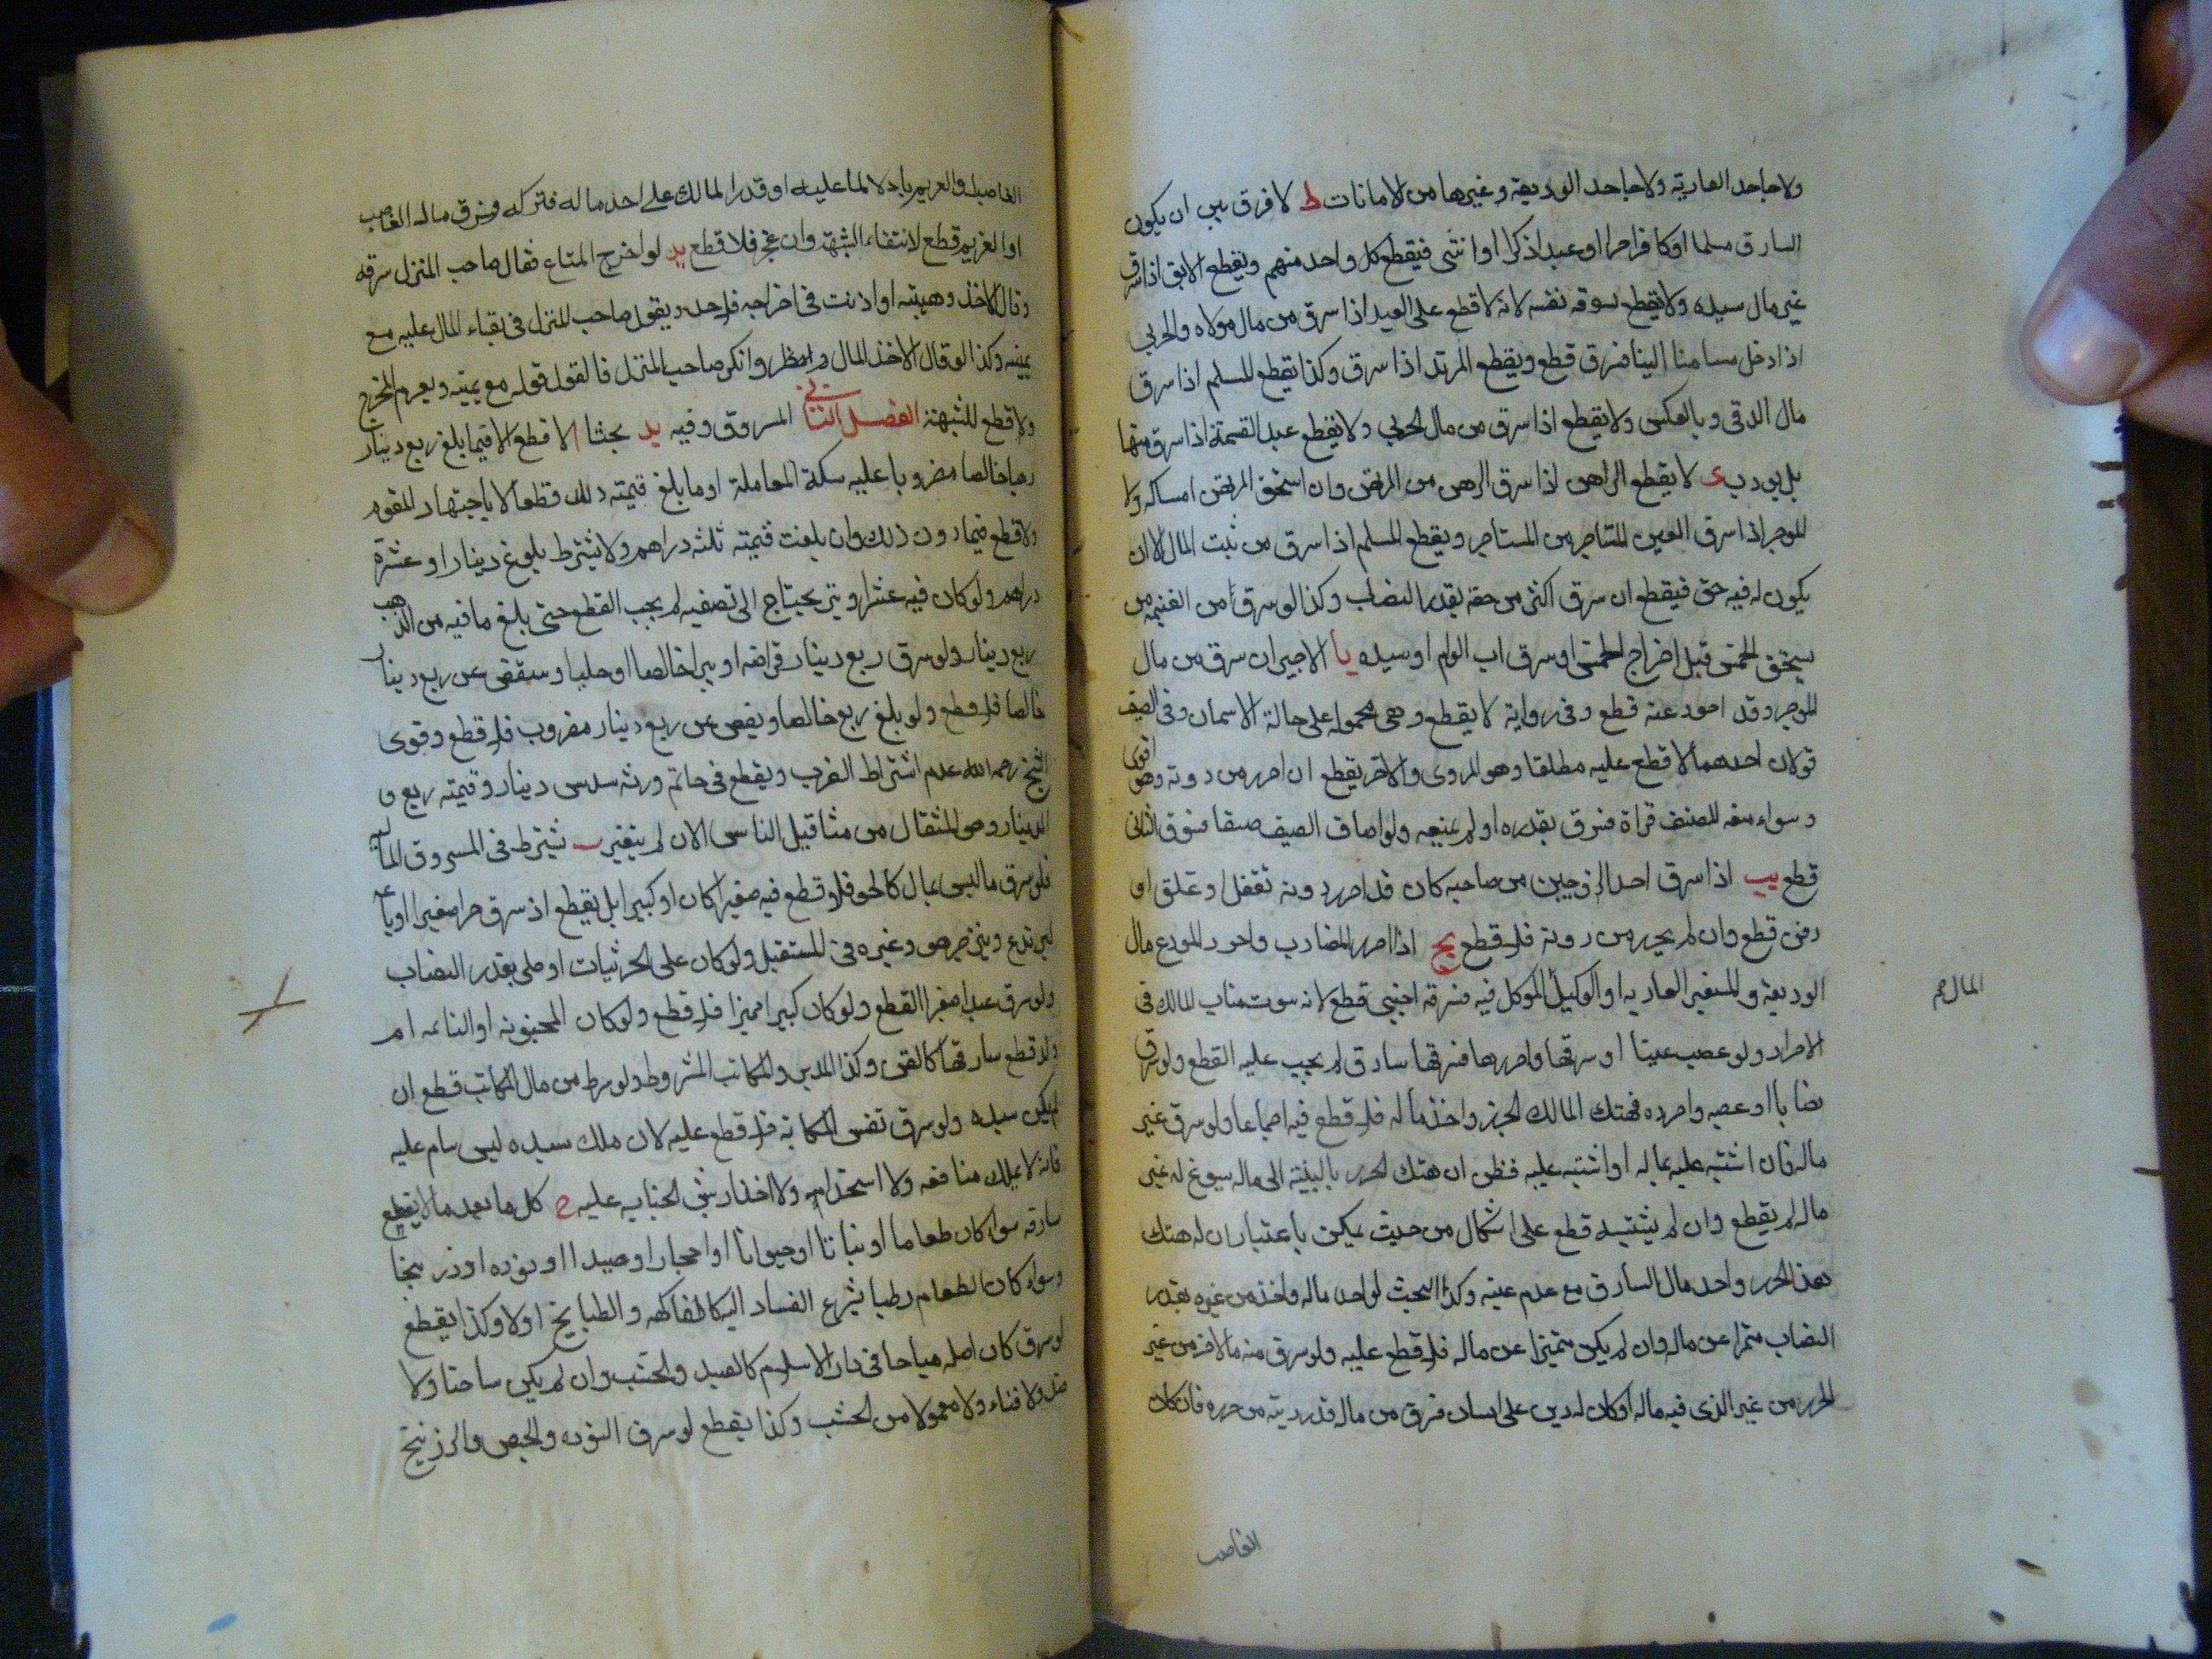 ولا جاحد العارية ولا جاحد الوديعة وغيرها من الامانات ط لا فرق بين ان يكون
السارق مسلما او كافرا حرا او عبدا ذكرا او انثى فيقطع كل واحد منهم ويقطع الابق اذا سرق
غير مال سيده ولا يقطع لسرقة نفسه لانه لا قطع على العبد اذا سرق من مال مولاه والحربي
اذا دخل مستامنا الينا فسرق قطع ويقطع المرتد اذا سرق وكذا يقطع المسلم اذا سرق
مال الذمي وبالعكس ولا يقطع اذا سرق من مال الحربي ولا يقطع عبد القسمة اذا سرق منها
بل يودب ى لا يقطع الراهن اذا سرق الرهن من المرتهن وان استحق المرتهن امساكه ولا
الموجر اذا سرق العين المستاجر من المستاجر ويقطع المسلم اذا سرق من بيت المال الا ان
يكون له فيه حق فيقطع ان سرق اكثر من حقه بقدر النصاب وكذا لو سرق من الغنيمة من
يستحق الخمس قبل اخراج الخمس او سرق اب الولد او سيده يا الاجير ان سرق من مال
الموجر وقد احرز عنه قطع وفي رواية لا يقطع وهي محمولة على حالة الاستيمان وفي الضيف
قولان احدهما لا قطع عليه مطلقا وهو المروي والاخر يقطع ان احرز من دونه وهو اقوى
وسواء منعه المضيف قراه فسرق بقدره او لم يمنعه ولو اضاف الضيف ضيفا فسرق الثاني
قطع يب اذا سرق احد الزوجين من صاحبه كان قد احرز دونه بقفل او غلق او
دفن قطع وان لم يحرز من دونه فلا قطع يج اذا احرز المضارب واحرز المودع مال
الوديعة والمستعير العارية او الوكيل المال الموكل فيه فسرقه اجنبي قطع لانه ينوب مناب المالك في
الاحراز ولو غصب عينا او سرقها واحرزها فسرقها سارق لم يجب عليه القطع ولو سرق
نصابا او غصبه واحرزه فهتك المالك الحرز واخذ ماله فلا قطع فيه اجماعا ولو سرق غير
ماله فان اشتبه عليه بماله او اشتبه عليه فظن ان هتك الحرز بالنسبة الى ماله يسوغ له غير
ماله لم يقطع وان لم يشتبه قطع على اشكال من حيث يمكن باعتبار ان له هتك
هذا الحرز واخذ مال السارق مع عدم عينه وكذا البحث لو اخذ ماله واخذ من غيره بقدر
النصاب متميزا عن ماله وان لم يكن متميزا عن ماله فلا قطع عليه ولو سرق منه مالا اخر من غير
الحرز من غير الذي فيه ماله او كان له دين على انسان فسرق من ماله قدر دينه من حرزه فان كان
الغاصب
الغاصب والغريم باذلا لما عليه او قدر المالك على اخذ ماله فتركه وسرق مال الغاصب
او الغريم قطع لانتفاء الشبهة وان عجز فلا قطع يد لو اخرج المتاع فقال صاحب المنزل سرقه
وقال الاخذ وهبتنيه او اذنت في اخراجه فلا حد ويقول صاحب المنزل في بقاء المال عليه مع
يمينه وكذا لو قال الاخذ المال وانكر صاحب المنزل فالقول قوله مع يمينه ويغرم المخرج
ولا قطع للشبهة الفصل الثاني المسروق وفيه يد بحثا ا لا قطع الا فيما بلغ ربع دينار
ذهبا خالصا مضروبا عليه سكة المعاملة او ما بلغ قيمته ذلك قطعا لا باجتهاد المقوم
ولا قطع فيما دون ذلك وان بلغت قيمته ثلثه دراهم ولا يشترط بلوغ دينار او عشرة
دراهم ولو كان فيه غش او شئ يحتاج الى تصفيه لم يجب القطع حتى يبلغ ما فيه من الذهب
ربع دينار ولو سرق ربع دينار قراضه او تبرا خالصا او حليا وينقص عن ربع دينار
خالصا فلا قطع ولو بلغ ربع خالصا وينقص عن ربع دينار مضروب فلا قطع وقوى
الشيخ رحمه الله عدم اشتراط الضرب ويقطع في خاتم وزنه سدس دينار وقيمته ربع و
الدينار وهو المثقال من مثاقيل الناس الان لم يتغير ب يشترط في المسروق المالية
فلو سرق ما ليس بمال كالحر فلا قطع فيه صغيرا كان او كبيرا بل يقطع اذ سرق حرا صغيرا او باعه
ليرتدع وينزجر هو وغيره في المستقبل ولو كان على الحر ثياب او حلى بقدر النصاب
ولو سرق عبدا صغيرا القطع ولو كان كبيرا مميزا فلا قطع ولو كان المجنونه او النائمه ام
ولد قطع سارقها كالقن وكذا المدبر والمكاتب المشروط ولو سرق من مال المكاتب قطع ان
لم يكن سيده ولو سرق نفس المكاتبه فلا قطع عليه لان ملك سيده ليس بتام عليه
فانه لا يملك منافعه ولا استخدامه ولا اخذ ارش الجنايه عليه ج كل ما يعد مالا يقطع
سارقه سواء كان طعاما او نباتا او حيوانا او احجارا او صيدا او نوره او زرنيخا
وسواء كان الطعام رطبا يسرع الفساد اليه كالفاكهه والطبايخ او لا وكذا يقطع
لو سرق كان اصله مباحا في دار الاسلام كالصيد والخشب وان لم يكن ساجا ولا
صندلا ولا قناء ولا معمولا من الخشب وكذا يقطع لو سرق النوره والجص والزرنيخ